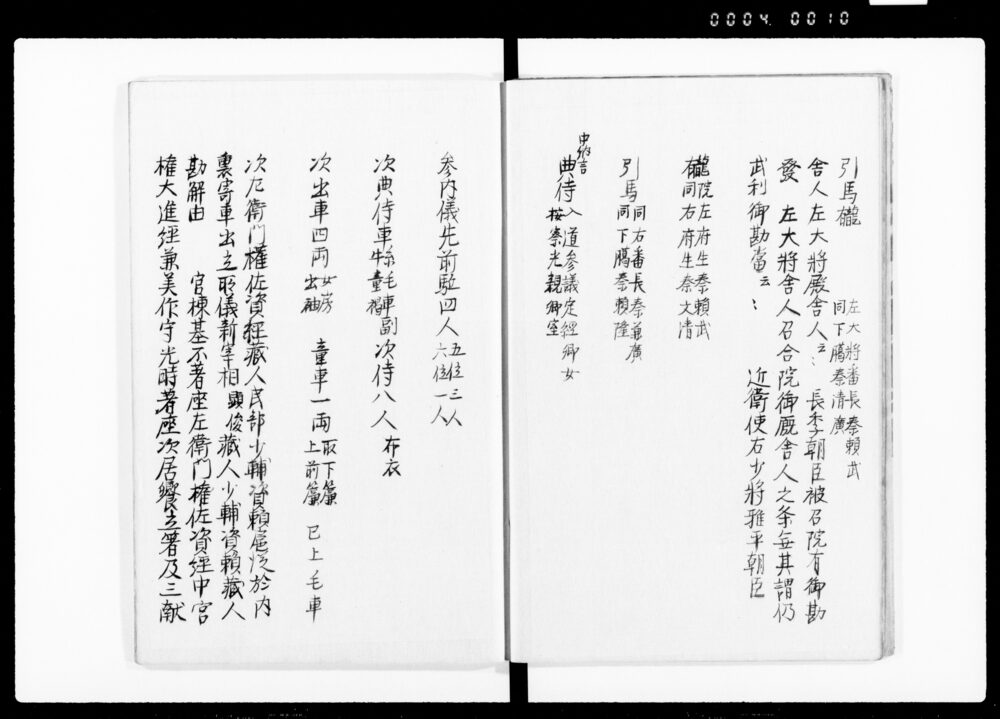 0004. 0010
引馬櫳 左大将番長秦頼武
同下臈秦清廣
舎人左大将厩舎人云〻 長季朝臣被召院有御勘
發 左大将舎人召合院御厩舎人之条每其謂仍
武利御勘當云〻 近衛使右少将雅平朝臣
櫳 院左府生秦頼武
同右府生秦文清
引馬 同右番長秦兼廣
同下臈秦頼隆
中納言
典侍 入道参議定經卿女
按察光親卿室
参内儀先前駈四人 五位三人
六位一人
次典侍車 糸毛車副
牛童褐 次侍八人 布衣
次出車四両 女房
出袖 童車一両 取下簾
上前簾 已上毛車
次左衛門權佐資經藏人民部少輔資頼扈従於内
裏寄車出立所儀新宰相 顕俊 藏人少輔資頼藏人
勘解由 官棟基不著座左衛門權佐資經中宮
權大進經兼美作守光時著座次居饗立箸及三献